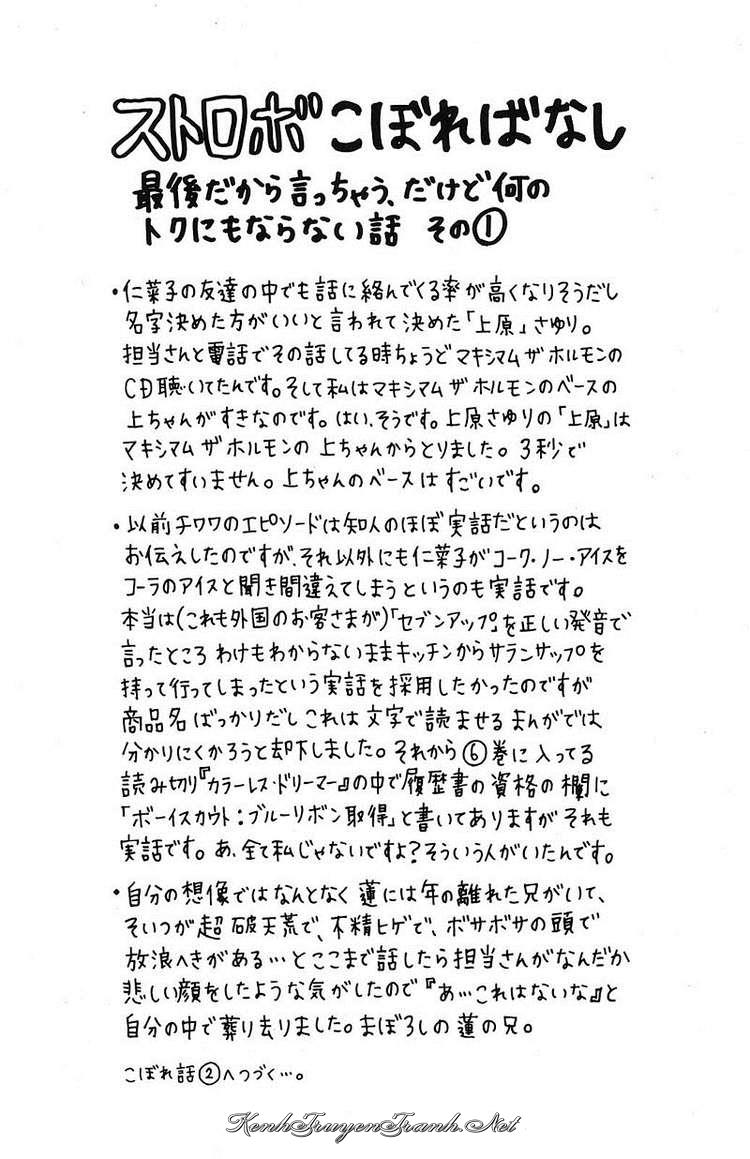 ストロボこぼればなし
最後だから言っちゃう、だけど何の
トクにもならない話 その①
・仁菜子の友達の中でも話に絡んでくる率が高くなりそうだし
名字決めた方がいいと言われて決めた「上原」さゆり。
担当さんと電話でその話してる時ちょうどマキシマム ザ ホルモンの
CD聴いてたんです。そして私はマキシマム ザ ホルモンのベースの
上ちゃんがすきなのです。はい、そうです。上原さゆりの「上原」は
マキシマム ザ ホルモンの 上ちゃんからとりました。3秒で
決めてすいません。上ちゃんのベースは すごいです。
・以前チワワのエピソードは知人のほぼ実話だというのは
お伝えしたのですが、それ以外にも仁菜子がコーク・ノー・アイスを
コーラのアイスと聞き間違えてしまうというのも実話です。
本当は(これも外国のお客さまが)「セブンアップ」を正しい発音で
言ったところ わけもわからないままキッチンからサランラップを
持って行ってしまったという実話を採用したかったのですが
商品名ばっかりだし これは文字で読ませる まんがでは
分かりにくかろうと却下しました。それから⑥巻に入ってる
読み切り『カラーレス・ドリーマー』の中で履歴書の資格の欄に
「ボーイスカウト:ブルーリボン取得」と書いてありますが それも
実話です。あ、全て私じゃないですよ?そういう人がいたんです。
・自分の想像ではなんとなく 蓮には年の離れた兄がいて、
そいつが超破天荒で、不精ヒゲで、ボサボサの頭で
放浪へきがある…とここまで話したら担当さんがなんだか
悲しい顔をしたような気がしたので『あ…これはないな』と
自分の中で葬り去りました。まぼろしの 蓮の兄。
こぼれ話②へつづく…。
KenhTruyenTranh.Net